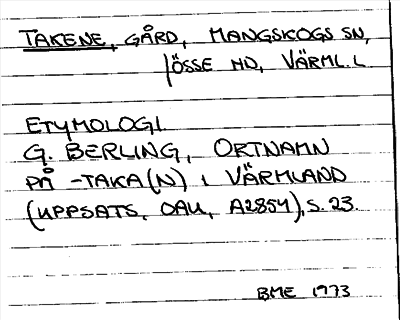 TAKENE, GÅRD, MANGSKOGS SN,
JÖSSE HD, VÄRML. L
ETYMOLOGI
G. BERLING, ORTNAMN
PÅ -TAKA(N) I VÄRMLAND
(UPPSATS, OAU, A2854), S. 23.
BME 1973